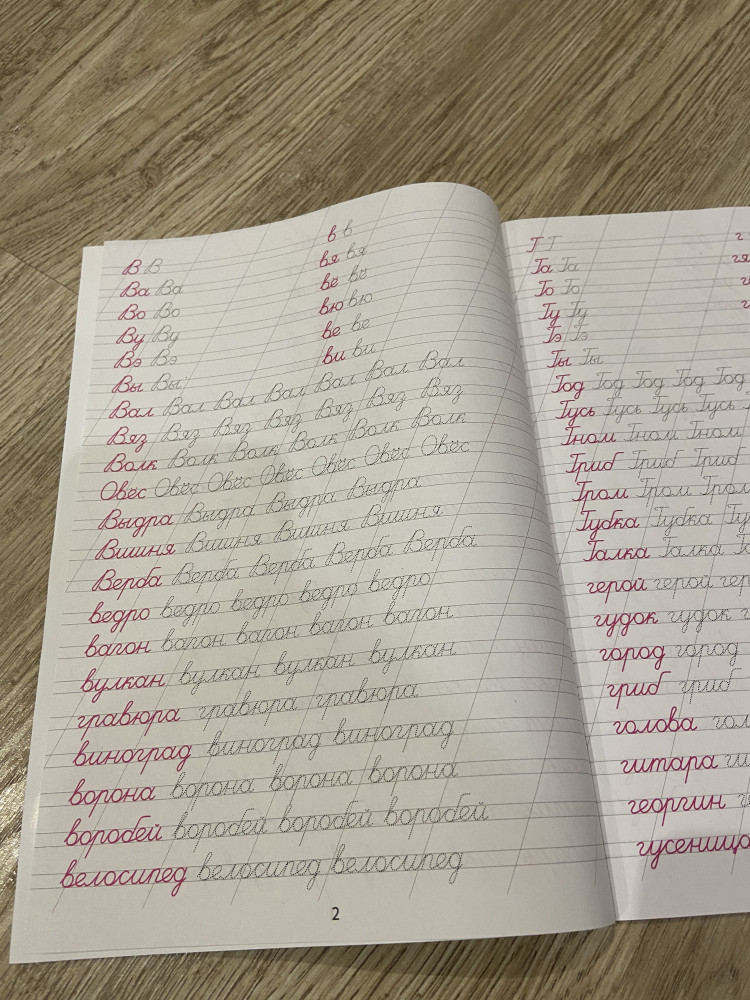 В В в в
Ва Ва вя вя
Во Во вё вё
Ву Ву вю вю
Вэ Вэ ве ве
Вы Вы ви ви
Вал Вал Вал Вал Вал Вал Вал
Вяз Вяз Вяз Вяз Вяз Вяз Вяз
Волк Волк Волк Волк Волк Волк
Овёс Овёс Овёс Овёс Овёс Овёс Овёс
Выдра Выдра Выдра Выдра
Вишня Вишня Вишня Вишня
Верба Верба Верба Верба Верба
ведро ведро ведро ведро ведро
вагон вагон вагон вагон вагон
вулкан вулкан вулкан вулкан
гравюра гравюра гравюра
виноград виноград виноград
ворона ворона ворона ворона
воробей воробей воробей воробей
велосипед велосипед велосипед
2
Г Г г
Га Га гя
Го Го
Гу Гу
Гэ Гэ
Гы Гы
Год Год Год Год Год
Гусь Гусь Гусь Гусь
Гном Гном Гном
Гриб Гриб Гриб
Гром Гром Гром
Губка Губка
Галка Галка
герой герой
гудок гудок
город город
гриб гриб
голова
гитара
георгин